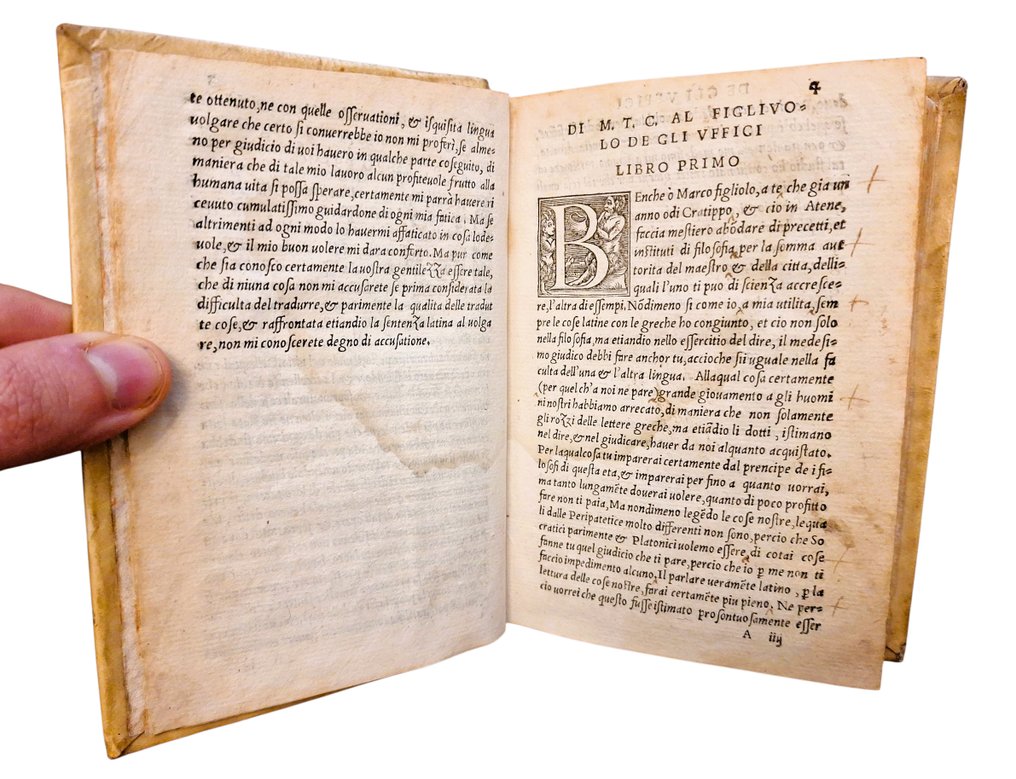 te ottenuto, ne con quelle osseruationi, & isquisita lingua
uolgare che certo si conuerrebbe io non mi proferi, se alme=
no per giudicio di uoi hauero in qualche parte coseguito, di
maniera che di tale mio lauoro alcun profiteuole frutto alla
humana uita si possa sperare, certamente mi parrà hauere ri
ceuuto cumulatissimo guidardone di ogni mia fatica. Ma se
altrimenti ad ogni modo lo hauermi affaticato in cosa lode=
uole, & il mio buon uolere mi dara conforto. Ma pur come
che sia conosco certamente la uostra gentilezza essere tale,
che di niuna cosa non mi accusarete se prima considerata la
difficulta del tradurre, & parimente la qualita delle tradut
te cose, & raffrontata etiandio la sentenza latina al uolga
re, non mi conoscerete degno di accusatione.
4
DI M. T. C. AL FIGLIVO=
LO DE GLI VFFICI
LIBRO PRIMO
BEnche ò Marco figliolo, a te che gia un
anno odi Cratippo, & cio in Atene,
faccia mestiero abōdare di precetti, et
instituti di filosofia, per la somma aut
torita del maestro & della citta, delli=
quali l'uno ti puo di scienza accresce=
re, l'altra di essempi. Nōdimeno si come io, a mia utilita, sem
pre le cose latine con le greche ho congiunto, et cio non solo
nella filosofia, ma etiandio nello essercitio del dire, il medesi=
mo giudico debbi fare anchor tu, accioche sii uguale nella fa
culta dell'una & l'altra lingua. Allaqual cosa certamente
(per quel ch'a noi ne pare) grande giouamento a gli huomi
ni nostri habbiamo arrecato, di maniera che non solamente
gli rozzi delle lettere greche, ma etiādio li dotti, istimano
nel dire, & nel giudicare, hauer da noi alquanto acquistato.
Per laqualcosa tu imparerai certamente dal prencipe de i fi=
losofi di questa eta, & imparerai per fino a quanto uorrai,
ma tanto lungamēte douerai uolere, quanto di poco profitto
fare non ti paia, Ma nondimeno legēdo le cose nostre, lequa
li dalle Peripatetice molto differenti non sono, percio che So
cratici parimente & Platonici uolemo essere, di cotai cose
fanne tu quel giudicio che ti pare, percio che io ꝑ me non ti
faccio impedimento alcuno. Il parlare ueramēte latino, ꝑ la
lettura delle cose nostre, farai certamēte piu pieno. Ne per=
cio uorrei che questo fusse istimato prosontuosamente esser
A iiij